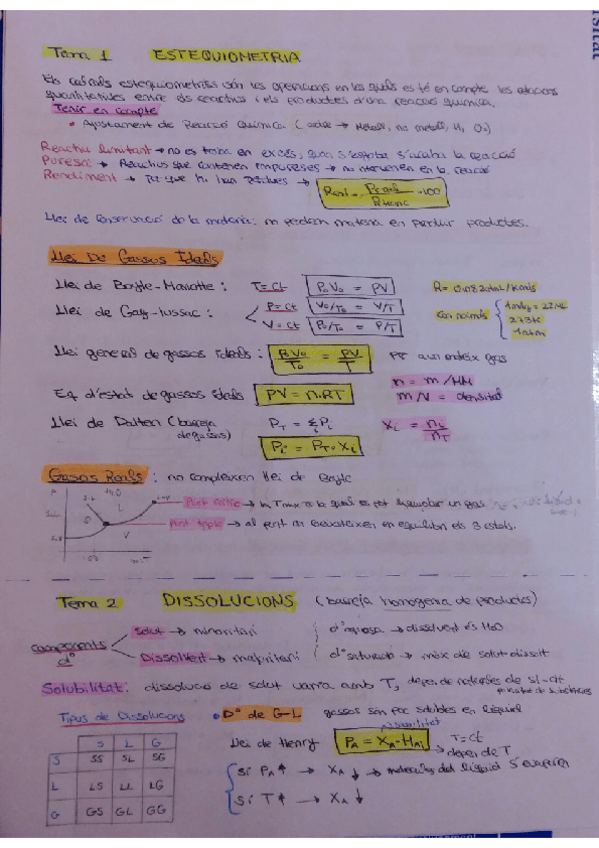 Tema 1 ESTEQUIOMETRIA
Els càlculs estequiomètrics són les operacions en les quals es té en compte les relacions
quantitatives entre els reactius i els productes d'una reacció química.
Tenir en compte
• Ajustament de Reacció Química (ordre → Metalls, no metalls, H, O₂)
Reactiu limitant → no es troba en excés, quan s'esgota s'acaba la reacció
Puresa: → Reactius que contenen impureses → no intervenen en la reacció
Rendiment → Ja que hi han pèrdues → Rend = Preal / Rteòric · 100
Llei de conservació de la matèria: no perdem matèria en produir productes.
Llei De Gassos Ideals
Llei de Boyle-Mariotte: T=Ct P₀V₀ = PV R= 0.082 atmL/Kmols
Llei de Gay-lussac: P=Ct V₀/T₀ = V/T Con normals 1molg = 22'4L
V=Ct P₀/T₀ = P/T 273K
1atm
Llei general de gassos ideals: P₀V₀/T₀ = PV/T gas
n = m/MM
Eq d'estat de gassos ideals PV = n.RT m/V = densitat
Llei de Dalton (barreja de gassos) P_T = Σ P_i X_i = n_i/n_T
P_i = P_T · X_i
Gasos Reals: no compleixen llei de Boyle
Punt crític → la qual es pot un gas
Punt triple → al punt on coexisteixen en equilibri els 3 estats.
L
S
V
Tema 2 DISSOLUCIONS (barreja homogenia de productes)
components dº
Solut → minoritari dº aquosa → dissolvent és H₂O
Dissolvent → majoritari dº saturació → màx de solut dissolt
Solubilitat: dissolució de solut varia amb T, depèn de
Tipus de Dissolucions • Dº de G-L gassos són poc solubles en líquid
solubilitat
S L G Llei de Henry P_A = X_A · H_A T=Ct
S SS SL SG → depèn de T
L LS LL LG Si P_A ↑ → X_A ↓ → molecules del líquid s'evaporen
G GS GL GG Si T ↑ → X_A ↓